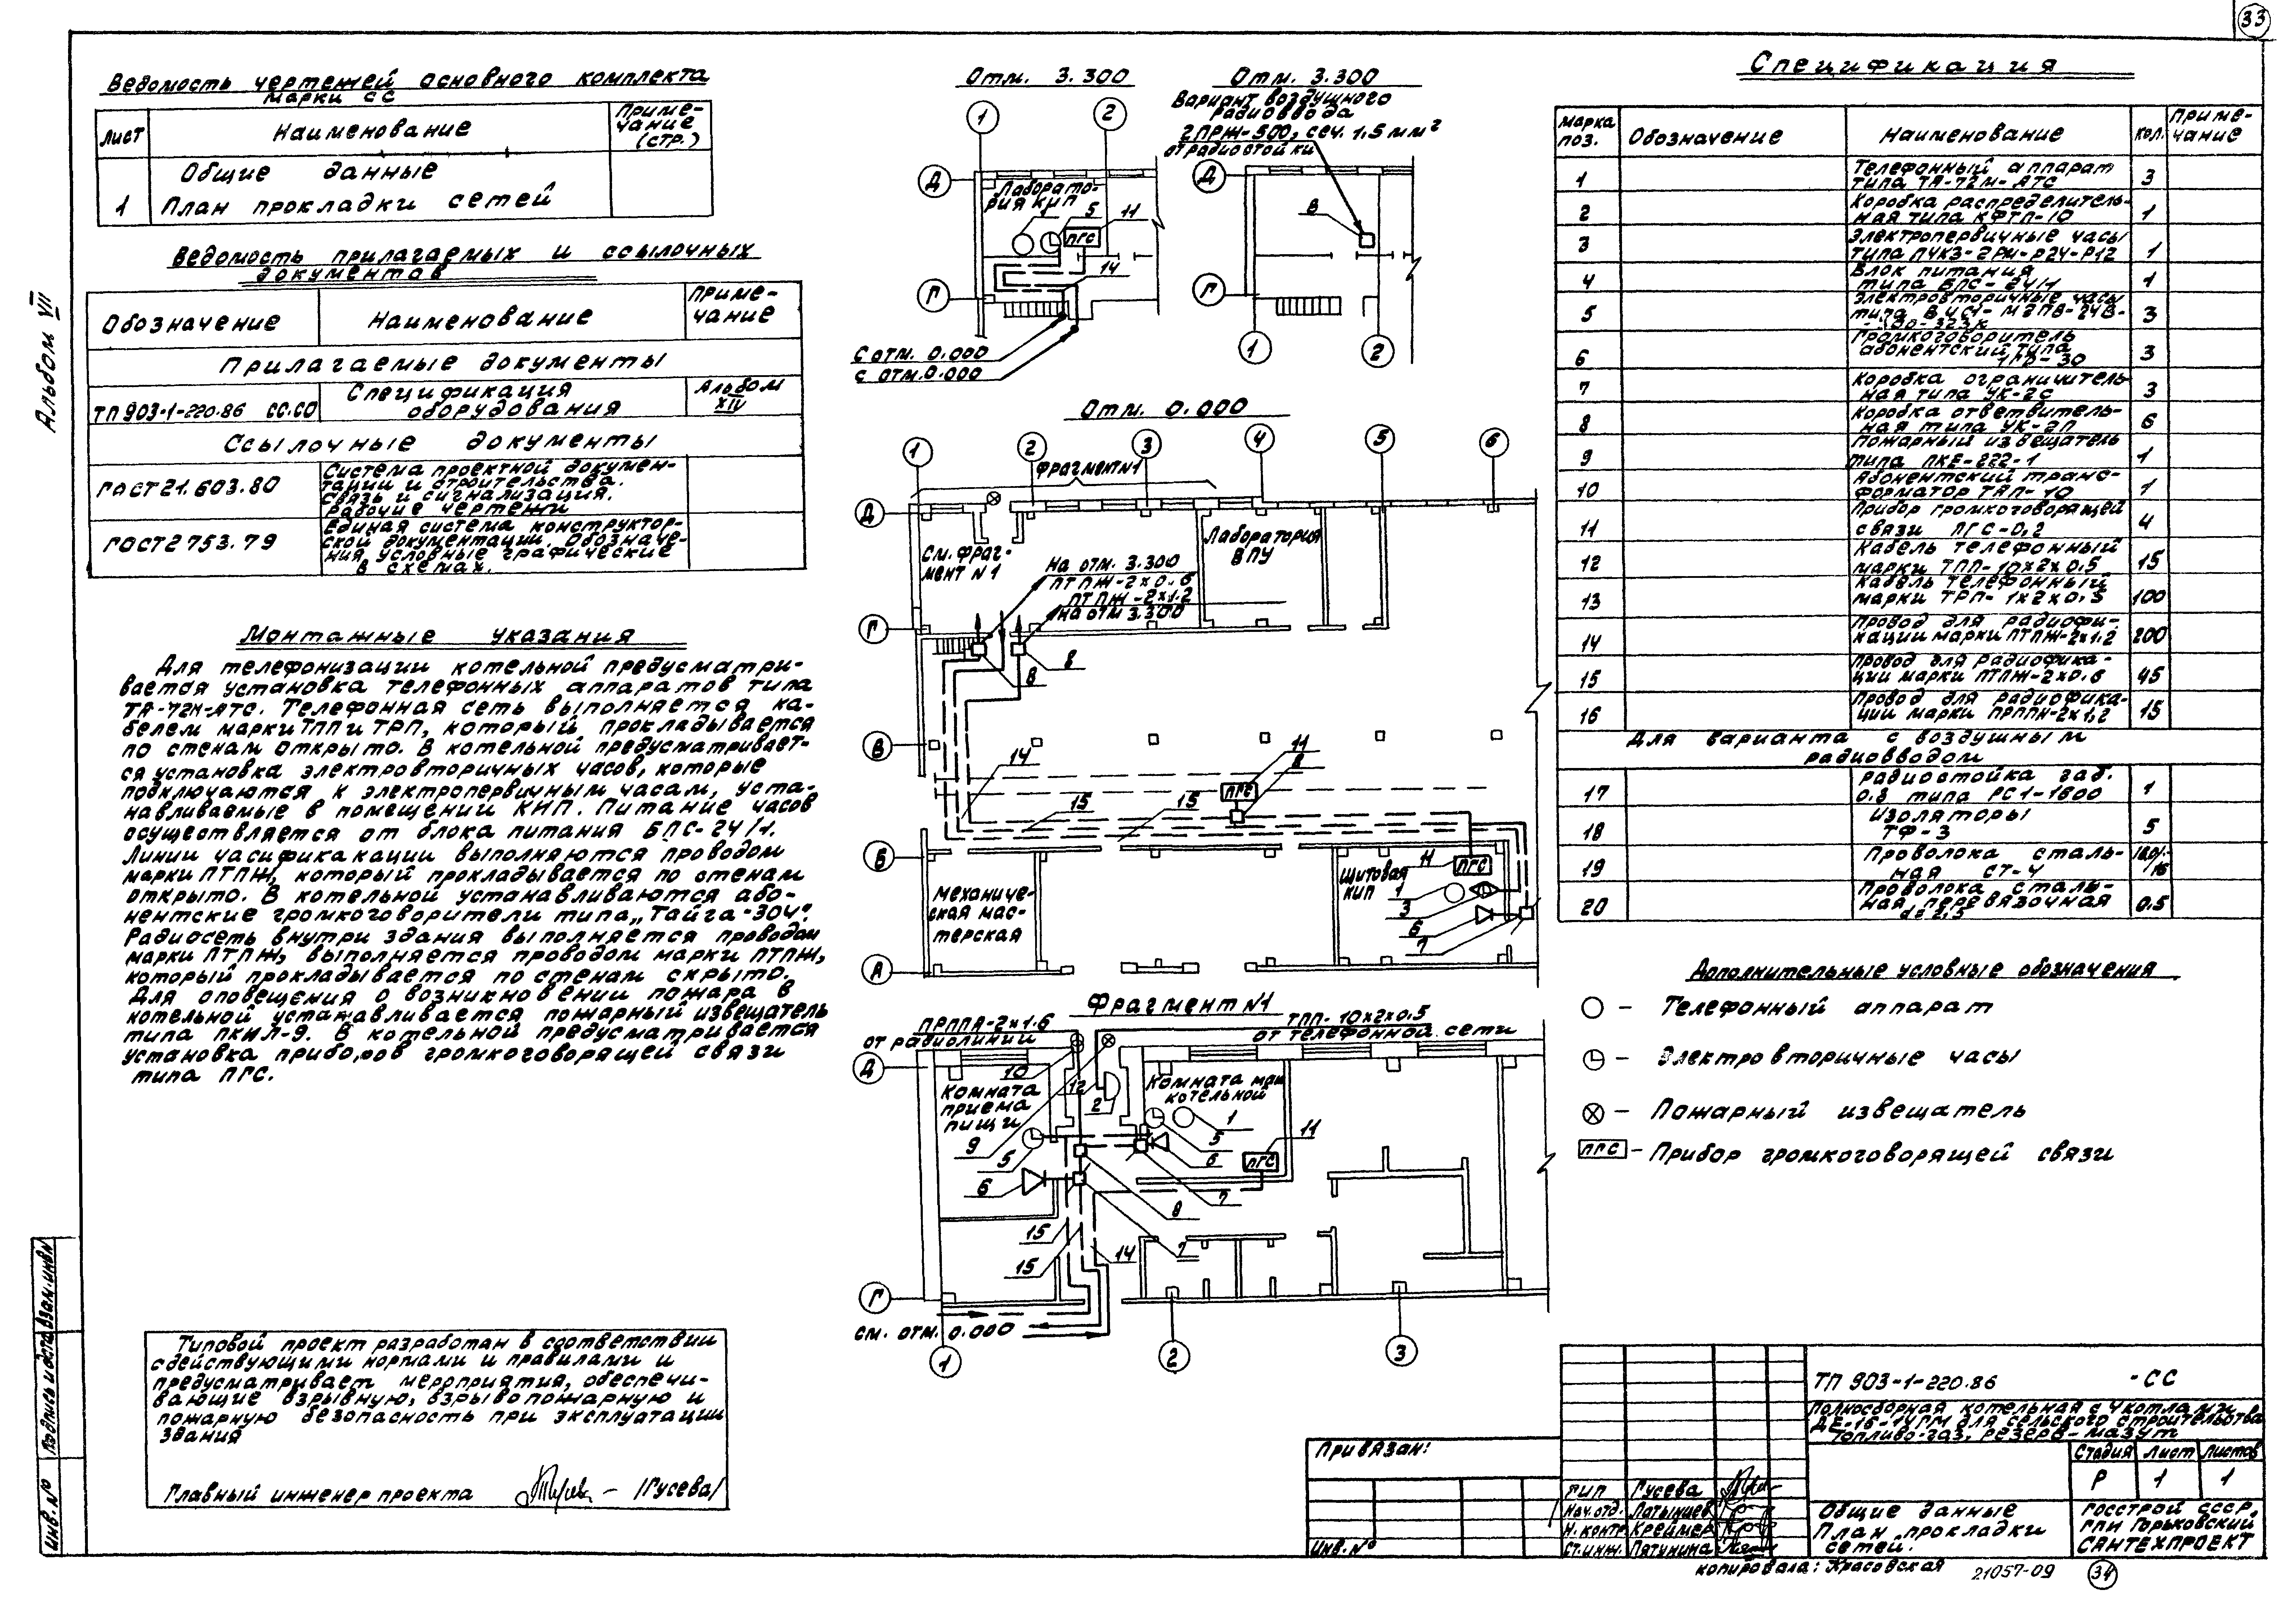 33
Альбом VII
Ведомость чертежей основного комплекта
марки СС
Лист
Наименование
Приме-
чание
(стр.)
Общие данные
1 План прокладки сетей
Ведомость прилагаемых и ссылочных
документов
Обозначение
Наименование
Приме-
чание
Прилагаемые документы
ТП 903-1-220.86 СС.СО
Спецификация
оборудования
Альбом
XIV
Ссылочные документы
ГОСТ 21.603.80
Система проектной докумен-
тации и строительства.
Связь и сигнализация.
Рабочие чертежи
ГОСТ 2 753.79
Единая система конструктор-
ской документации. Обозначе-
ния условные графические
в схемах.
Монтажные указания
Для телефонизации котельной предусматри-
вается установка телефонных аппаратов типа
ТА-72М-АТС. Телефонная сеть выполняется ка-
белем марки ТПП и ТРП, который прокладывается
по стенам открыто. В котельной предусматривает-
ся установка электровторичных часов, которые
подключаются к электропервичным часам, уста-
навливаемые в помещении КИП. Питание часов
осуществляется от блока питания БПС-24/1.
Линии часификакации выполняются проводом
марки ПТПЖ, который прокладывается по стенам
открыто. В котельной устанавливаются або-
нентские громкоговорители типа „Тайга-304".
Радиосеть внутри здания выполняется проводом
марки ПТПЖ, выполняется проводом марки ПТПЖ,
который прокладывается по стенам скрыто.
Для оповещения о возникновении пожара в
котельной устанавливается пожарный извещатель
типа ПКИЛ-9. В котельной предусматривается
установка приборов громкоговорящей связи
типа ПГС.
Типовой проект разработан в соответствии
с действующими нормами и правилами и
предусматривает мероприятия, обеспечи-
вающие взрывную, взрывопожарную и
пожарную безопасность при эксплуатации
здания
Главный инженер проекта /Гусева/
Отм. 3.300
1
2
Д
Лаборато-
рия КИП
1
5
11
ПГС
14
Г
С отм. 0.000
С отм. 0.000
Отм. 3.300
Вариант воздушного
радиоввода
2ПРЖ-500, сеч. 1,5 мм²
от радиостойки
Д
8
Г
1
2
Отм. 0.000
1
2
3
4
5
6
Фрагмент №1
Д
См. фраг-
мент №1
На отм. 3.300
ПТПЖ-2х0.6
ПТПЖ-2х1.2
на отм 3.300
Лаборатория
ВПУ
Г
8
8
В
14
11
8
ПГС
15
15
Б
Механиче-
ская мас-
терская
Щитовая
КИП
11
ПГС
1
3
6
7
А
Фрагмент №1
ПРППА-2х1.6
от радиолинии
ТПП-10х2х0.5
от телефонной сети
Д
Комната
приема
пищи
10
12
2
Комната маш
котельной
1
5
6
11
ПГС
9
5
6
7
8
7
15
15
14
Г
см. отм. 0.000
1
2
3
Спецификация
Марка
поз.
Обозначение
Наименование
кол.
Приме-
чание
1 Телефонный аппарат
типа ТА-72М-АТС 3
2 Коробка распределитель-
ная типа КФТП-10 1
3 Электропервичные часы
типа ПЧК3-2РМ-Р24-Р12 1
4 Блок питания
типа БПС-24/1 1
5 Электровторичные часы
типа ВЧС1-М2ПВ-24В-
-300-323к 3
6 Громкоговоритель
абонентский типа
1ГД-30 3
7 Коробка ограничитель-
ная типа УК-2С 3
8 Коробка ответвитель-
ная типа УК-2П 6
9 Пожарный извещатель
типа ПКЕ-222-1 1
10 Абонентский транс-
форматор ТАП-10 1
11 Прибор громкоговорящей
связи ПГС-0,2 4
12 Кабель телефонный
марки ТПП-10х2х0.5 15
13 Кабель телефонный
марки ТРП-1х2х0.5 100
14 Провод для радиофи-
кации марки ПТПЖ-2х1.2 200
15 Провод для радиофика-
ции марки ПТПЖ-2х0.6 45
16 Провод для радиофика-
ции марки ПРППМ-2х1,2 15
Для варианта с воздушным
радиовводом
17 Радиостойка габ.
0.8 типа РС1-1800 1
18 Изоляторы
ТФ-3 5
19 Проволока сталь-
ная СТ-4
20 Проволока сталь-
ная перевязочная
d=2,5 0.5
Дополнительные условные обозначения
– Телефонный аппарат
– Электровторичные часы
– Пожарный извещатель
ПГС – Прибор громкоговорящей связи
Взам. инв.№
Подпись и дата
Инв. №
Привязан:
Инв. №
ГИП Гусева
Нач. отд. Латынцев
Н. контр. Креймер
Ст. инж. Патунина
ТП 903-1-220.86 -СС
Полносборная котельная с 4 котлами
ДЕ-16-14ГМ для сельского строительства
Топливо-газ, резерв-мазут
Стадия Лист Листов
Р 1 1
Общие данные
План прокладки
сетей.
Госстрой СССР,
ГПИ Горьковский
Сантехпроект
копировала: Красовская 21057-09 34